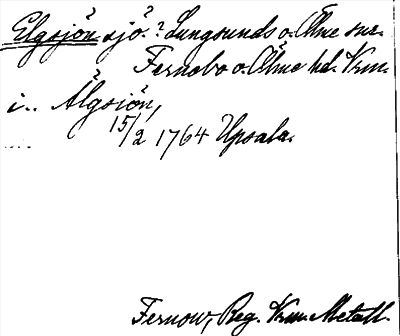 Elgsjön sjö? Lungsunds o. Ölme snr.
Fernebo o. Ölme hd. Vrm.
i.. Älgsiön,
15/2 1764 Upsala.
Fernow, Reg. Vrm. Metall.